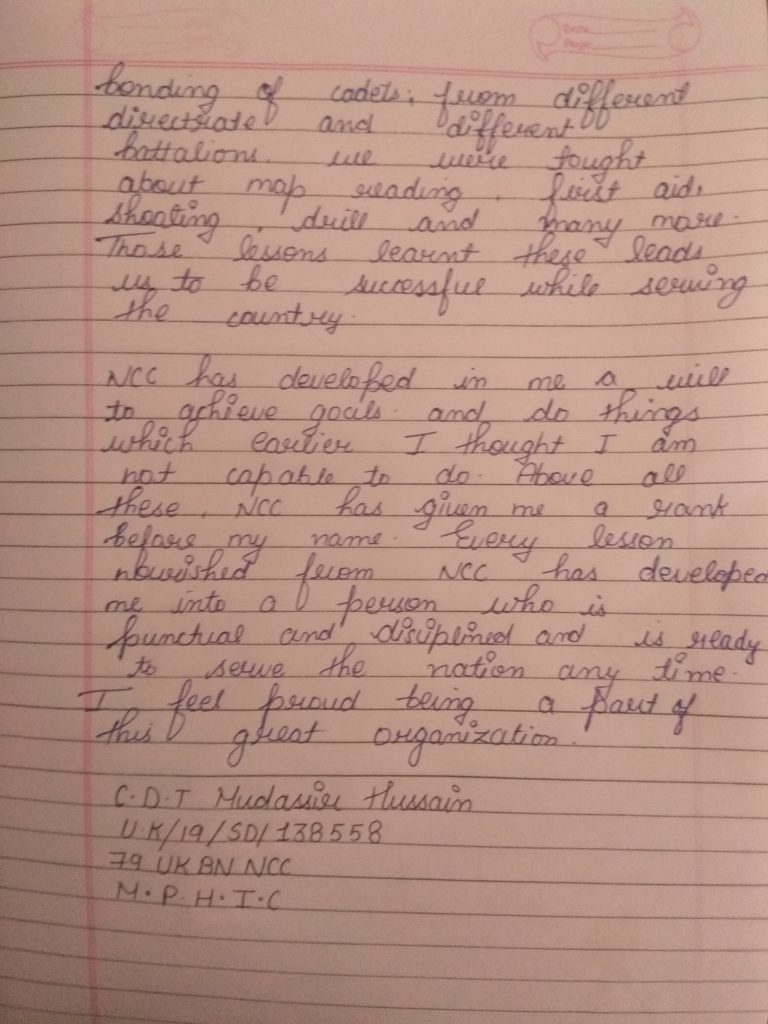 Date
Page
bonding of cadets, from different
directorate and different
battalions. we were tought
about map reading, first aid,
shooting, drill and many more.
Those lessons learnt these leads
us to be successful while serving
the country.
NCC has developed in me a will
to achieve goals and do things
which earlier I thought I am
not capable to do. Above all
these, NCC has given me a rank
before my name. Every lesson
nourished from NCC has developed
me into a person who is
punctual and disciplined and is ready
to serve the nation any time.
I feel proud being a part of
this great organization.
C.D.T Mudassir Hussain
U.K/19/SD/138558
79 UK BN NCC
M.P.H.I.C